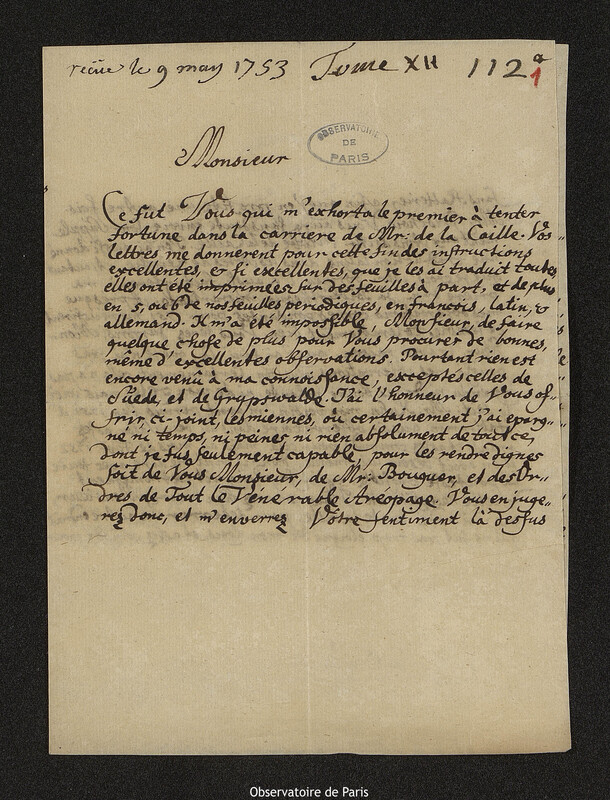 recüe le 9 may 1753 Tome XII 112 a
1
OBSERVATOIRE
DE
PARIS
Monsieur
Ce fut Vous qui m'exhorta le premier à tenter
fortune dans la carriere de Mr: de la Caille. Vos
lettres me donnerent pour cette fin des instructions
excellentes, & si excellentes, que je les ai traduit toutes,
elles ont été imprimées sur des feuilles à part, et de plus
en 5, ou 6 de nos feuilles periodiques, en francois, latin, &
allemand. Il m'a été impossible, Monsieur, de faire
quelque chose de plus pour Vous procurer de bonnes,
même d'excellentes observations. Pourtant rien est
encore venû à ma connoissance, exceptés celles de
Suede, et de Grypswalde. J'ai l'honneur de Vous of-
frir, ci-joint, les miennes, où certainement j'ai eparg-
né ni temps, ni peines, ni rien absolument de tout ce,
dont je fus seulement capable, pour les rendre dignes
soit de Vous Monsieur, de Mr: Bouguer, et des Or-
dres de Tout le Venerable Areopage. Vous en juge-
rez donc, et m'enverrez Vôtre sentiment là dessus
Observatoire de Paris